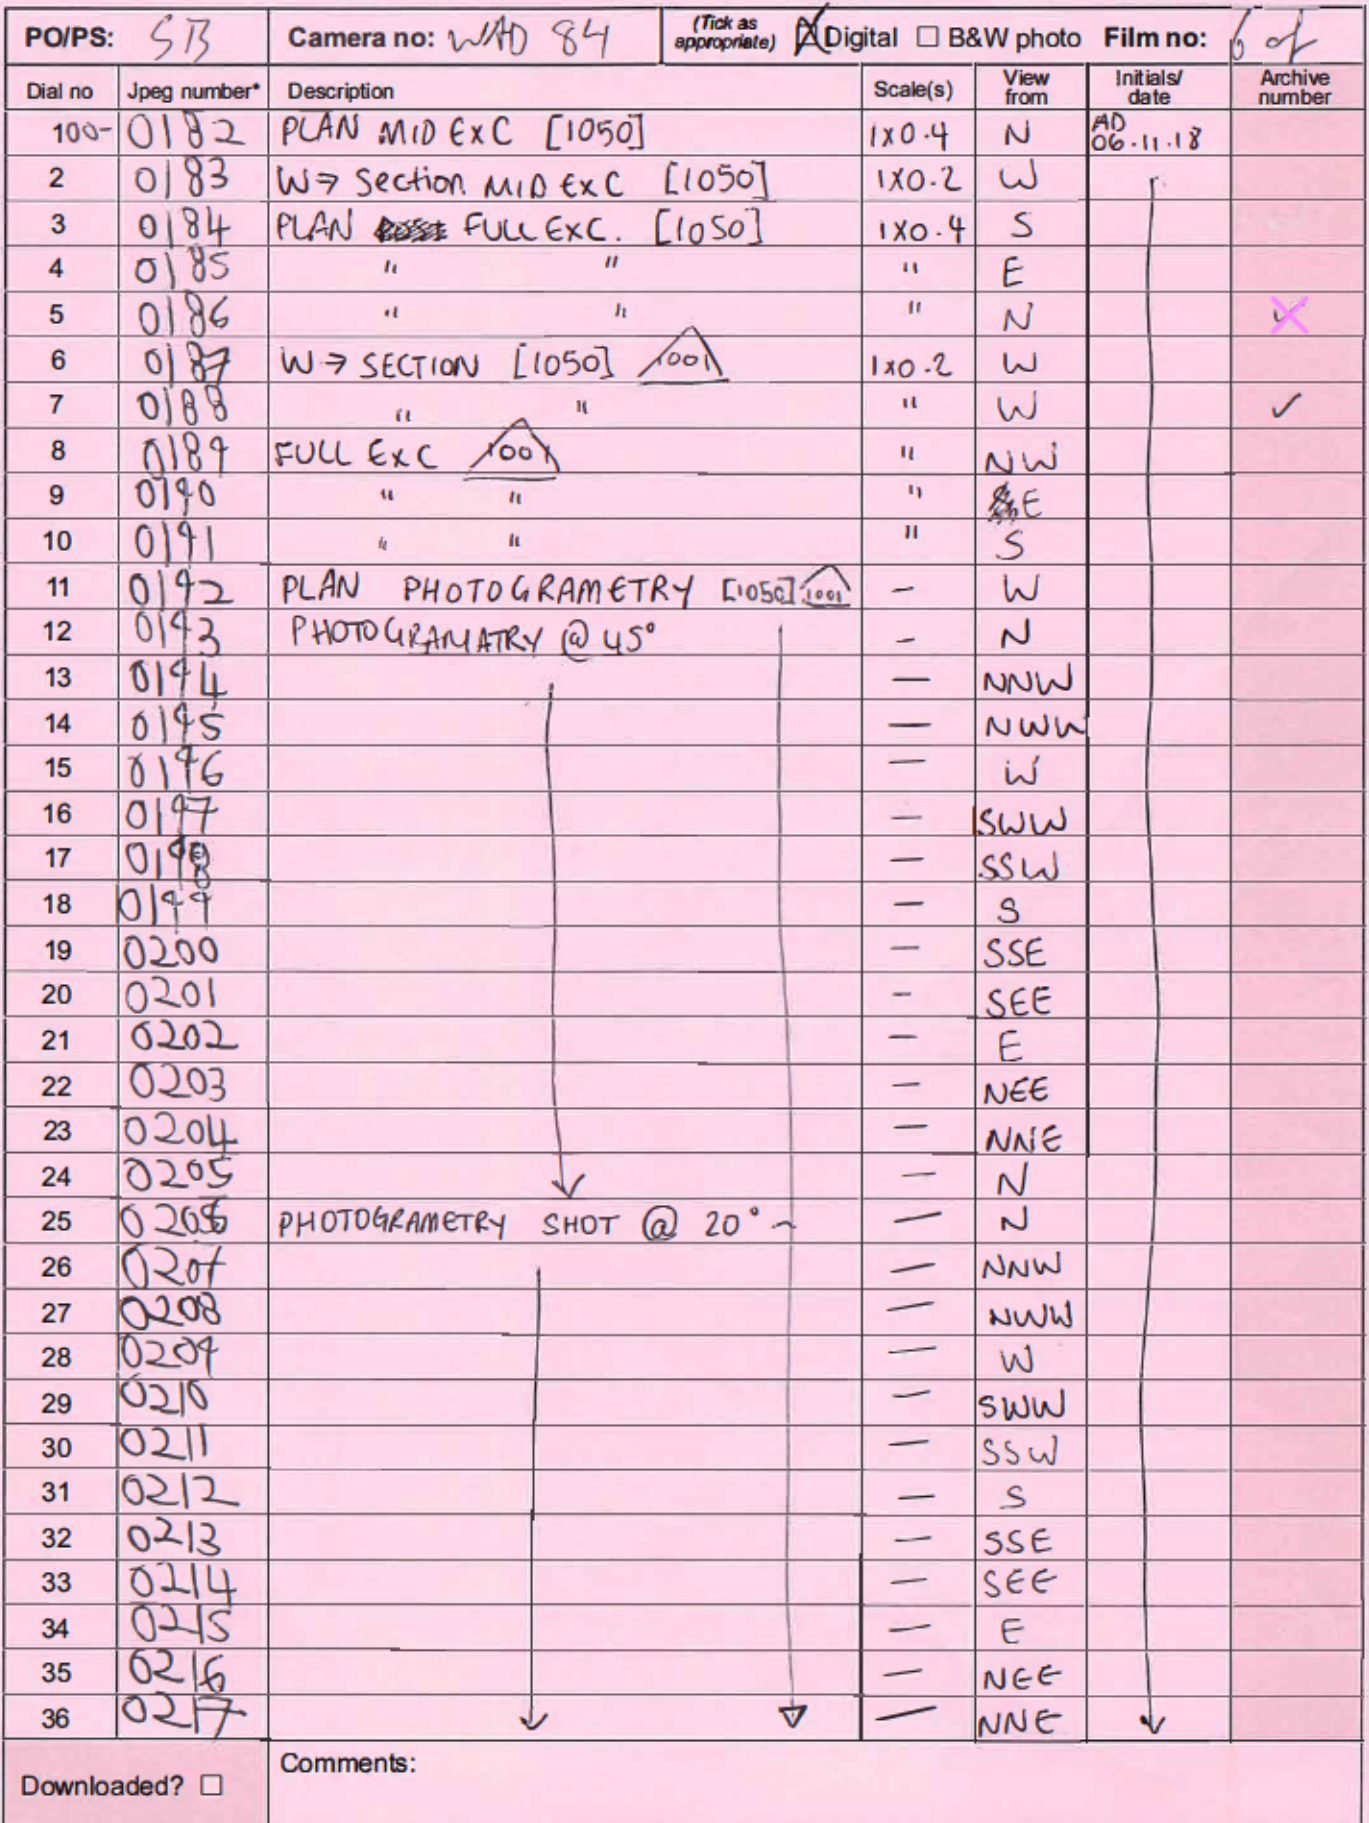 PO/PS: SB Camera no: WAD 84 (Tick as appropriate) Digital B&W photo Film no: 6 of
Dial no Jpeg number* Description Scale(s) View from Initials/ date Archive number
100- 0182 PLAN MID EXC [1050] 1X0.4 N AD 06.11.18
2 0183 W→ Section MID EXC [1050] 1X0.2 W
3 0184 PLAN FULL EXC. [1050] 1X0.4 S
4 0185 " " " E
5 0186 " " " N
6 0187 W→ SECTION [1050] 1001 1X0.2 W
7 0188 " " " W ✓
8 0189 FULL EXC 1001 " NW
9 0190 " " " E
10 0191 " " " S
11 0192 PLAN PHOTOGRAMETRY [1050] 1001 – W
12 0193 PHOTOGRAMATRY @ 45° – N
13 0194 – NNW
14 0195 – NWW
15 0196 – W
16 0197 – SWW
17 0198 – SSW
18 0199 – S
19 0200 – SSE
20 0201 – SEE
21 0202 – E
22 0203 – NEE
23 0204 – NNE
24 0205 – N
25 0206 PHOTOGRAMETRY SHOT @ 20° – N
26 0207 – NNW
27 0208 – NWW
28 0209 – W
29 0210 – SWW
30 0211 – SSW
31 0212 – S
32 0213 – SSE
33 0214 – SEE
34 0215 – E
35 0216 – NEE
36 0217 – NNE
Downloaded? Comments: